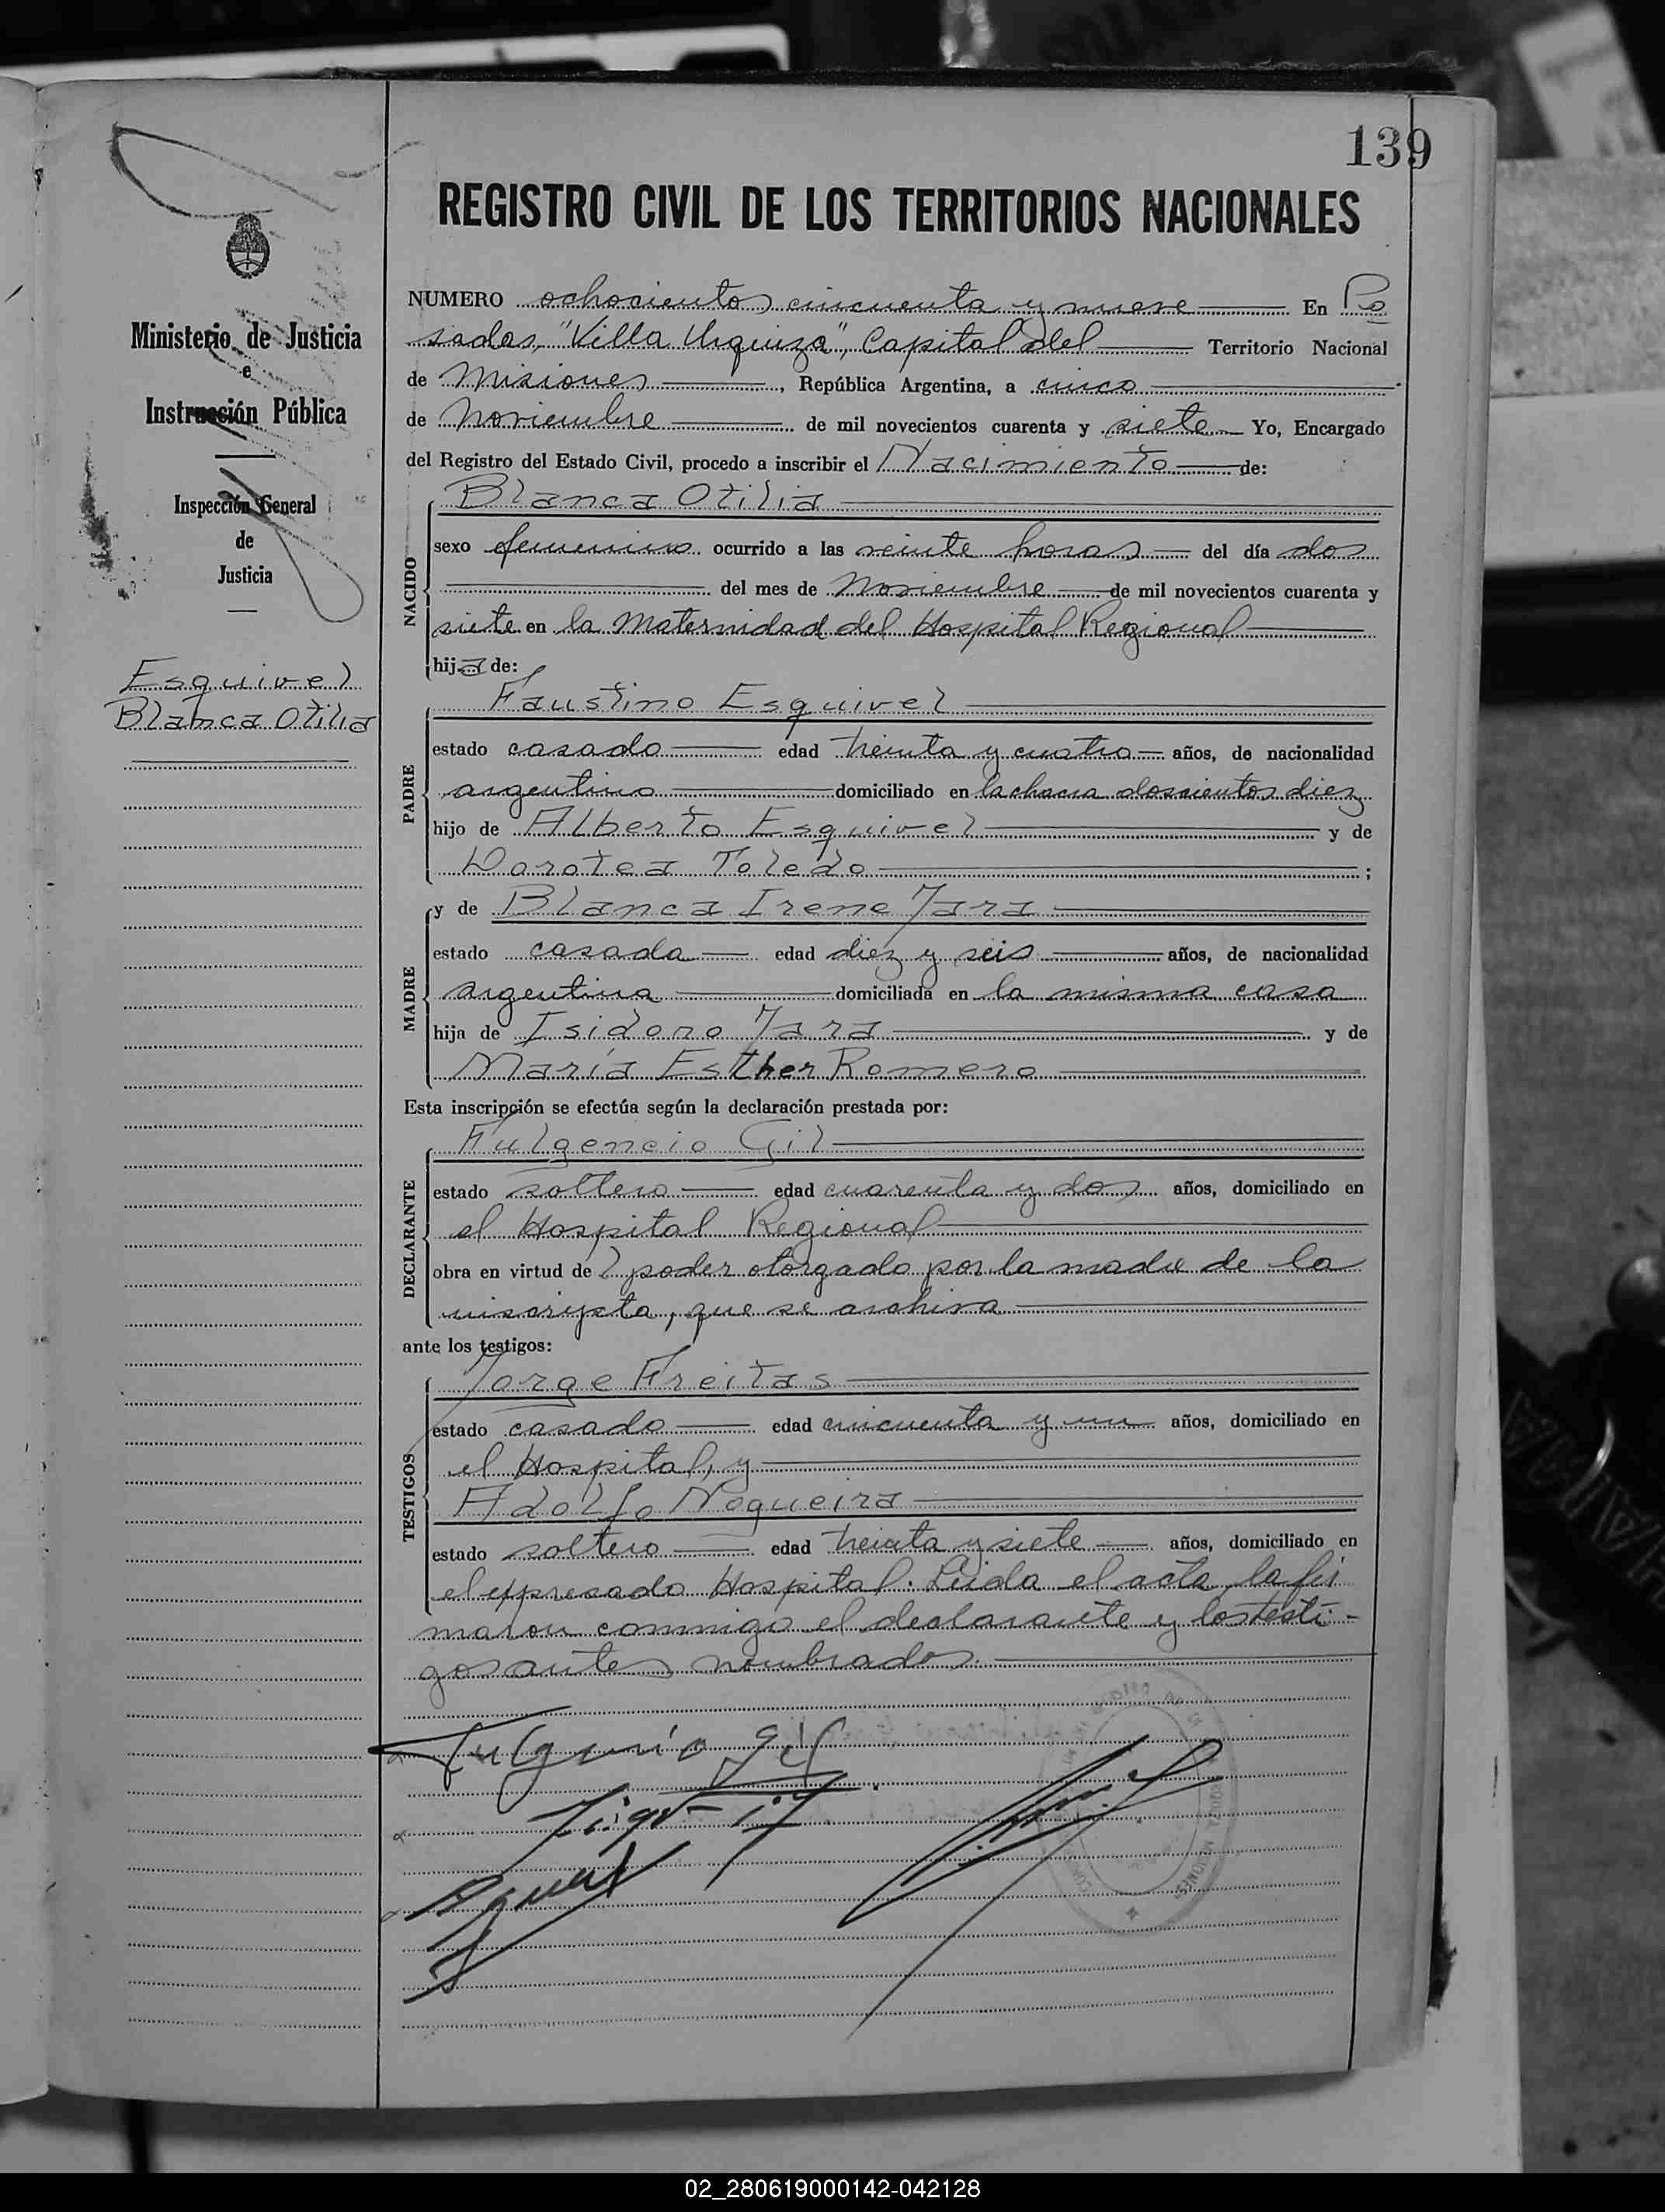 139
REGISTRO CIVIL DE LOS TERRITORIOS NACIONALES
Ministerio de Justicia
e
Instrucción Pública
Inspección General
de
Justicia
Esquivel
Blanca Otilia
NUMERO ochocientos cincuenta y nueve En Po
sadas, "Villa Urquiza", Capital del Territorio Nacional
de Misiones, República Argentina, a cinco
de Noviembre de mil novecientos cuarenta y siete Yo, Encargado
del Registro del Estado Civil, procedo a inscribir el Nacimiento de:
Blanca Otilia
NACIDO
sexo femenino ocurrido a las veinte horas del día dos
del mes de Noviembre de mil novecientos cuarenta y
siete en la Maternidad del Hospital Regional
hija de:
Faustino Esquivel
PADRE
estado casado edad treinta y cuatro años, de nacionalidad
argentino domiciliado en la chacra doscientos diez
hijo de Alberto Esquivel y de
Dorotea Toledo ;
y de Blanca Irene Jara
MADRE
estado casada edad diez y seis años, de nacionalidad
argentina domiciliada en la misma casa
hija de Isidoro Jara y de
María Esther Romero
Esta inscripción se efectúa según la declaración prestada por:
Fulgencio Gil
DECLARANTE
estado soltero edad cuarenta y dos años, domiciliado en
el Hospital Regional
obra en virtud del poder otorgado por la madre de la
inscripta, que se archiva
ante los testigos:
Jorge Freitas
TESTIGOS
estado casado edad cincuenta y un años, domiciliado en
el Hospital, y
Adolfo Nogueira
estado soltero edad treinta y siete años, domiciliado en
el expresado Hospital. Leída el acta, la fir
maron conmigo el declarante y los testi-
gos antes nombrados.
Fulgencio Gil
02_280619000142-042128